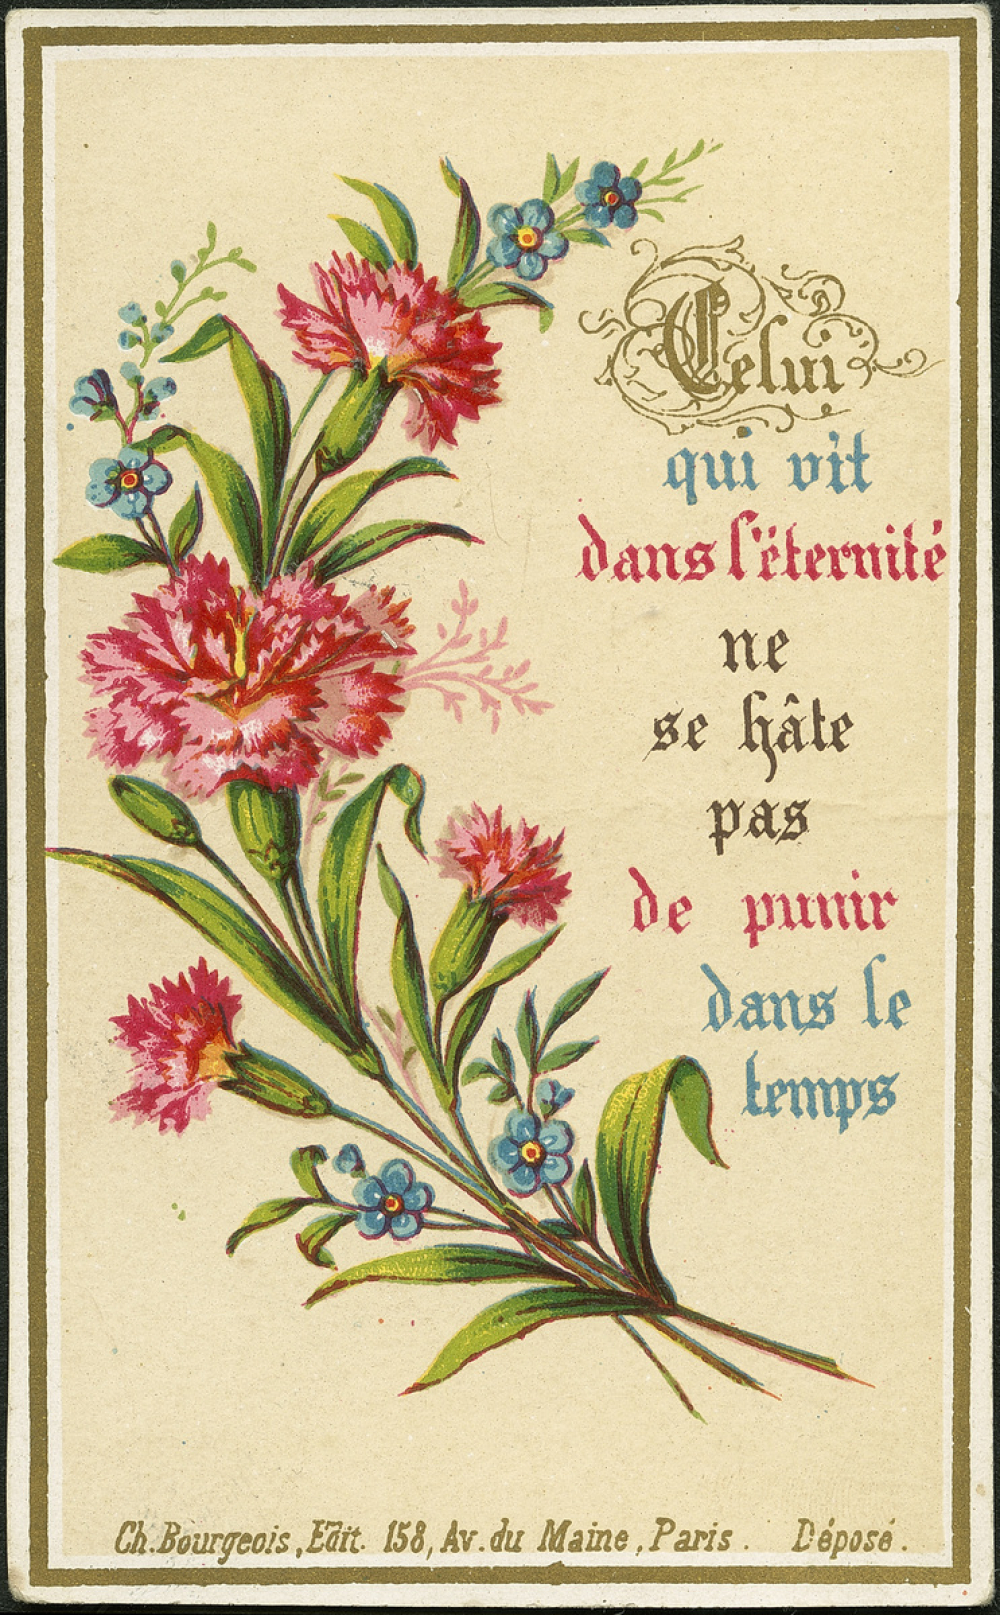 Celui
qui vit
dans l'éternité
ne
se hâte
pas
de punir
dans le
temps
Ch. Bourgeois, Edit. 158, Av. du Maine, Paris. Déposé.